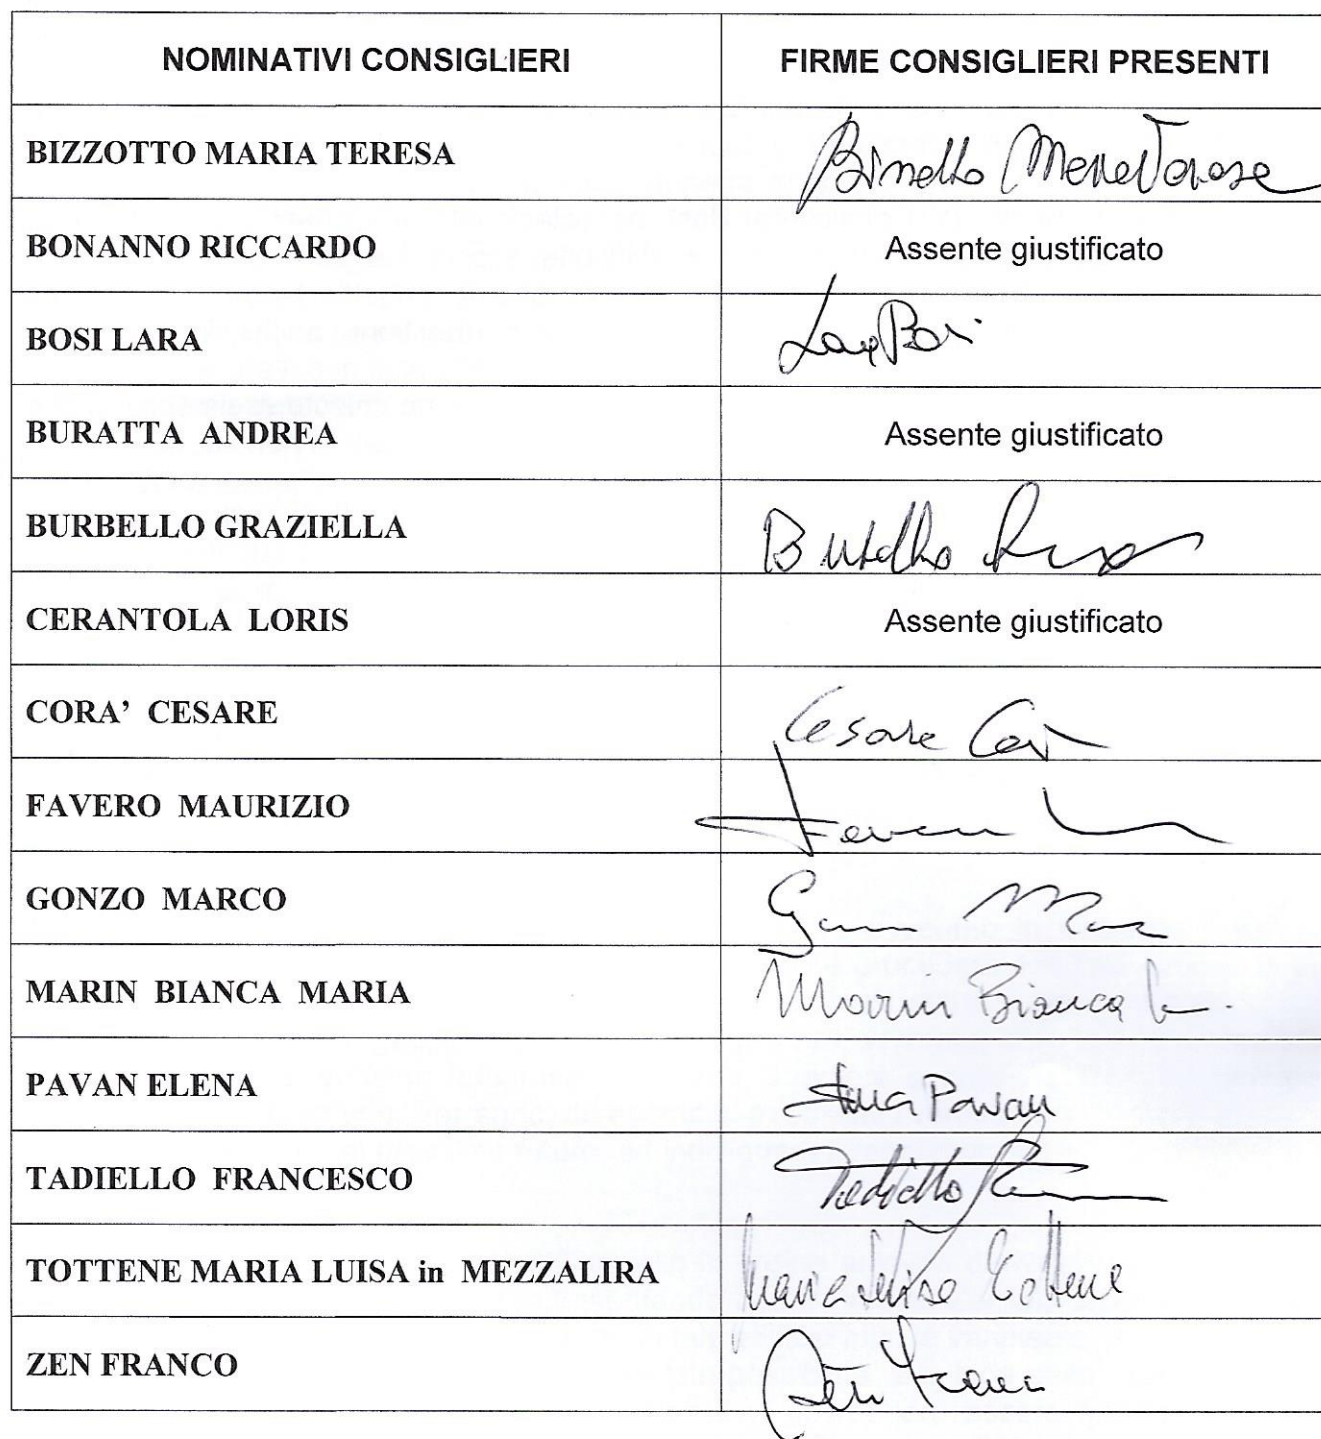 NOMINATIVI CONSIGLIERI FIRME CONSIGLIERI PRESENTI
BIZZOTTO MARIA TERESA
BONANNO RICCARDO Assente giustificato
BOSI LARA Lara Bosi
BURATTA ANDREA Assente giustificato
BURBELLO GRAZIELLA
CERANTOLA LORIS Assente giustificato
CORA' CESARE Cesare Corà
FAVERO MAURIZIO
GONZO MARCO
MARIN BIANCA MARIA Marin Bianca
PAVAN ELENA Elena Pavan
TADIELLO FRANCESCO Tadiello
TOTTENE MARIA LUISA in MEZZALIRA Maria Luisa Tottene
ZEN FRANCO Zen Franco